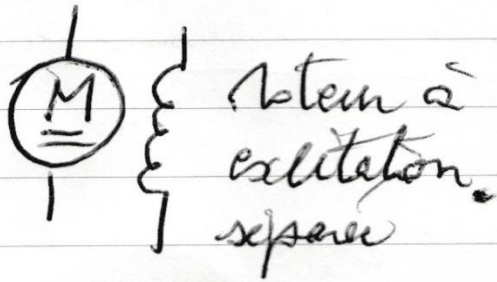 M
Moteur à
excitation.
séparée